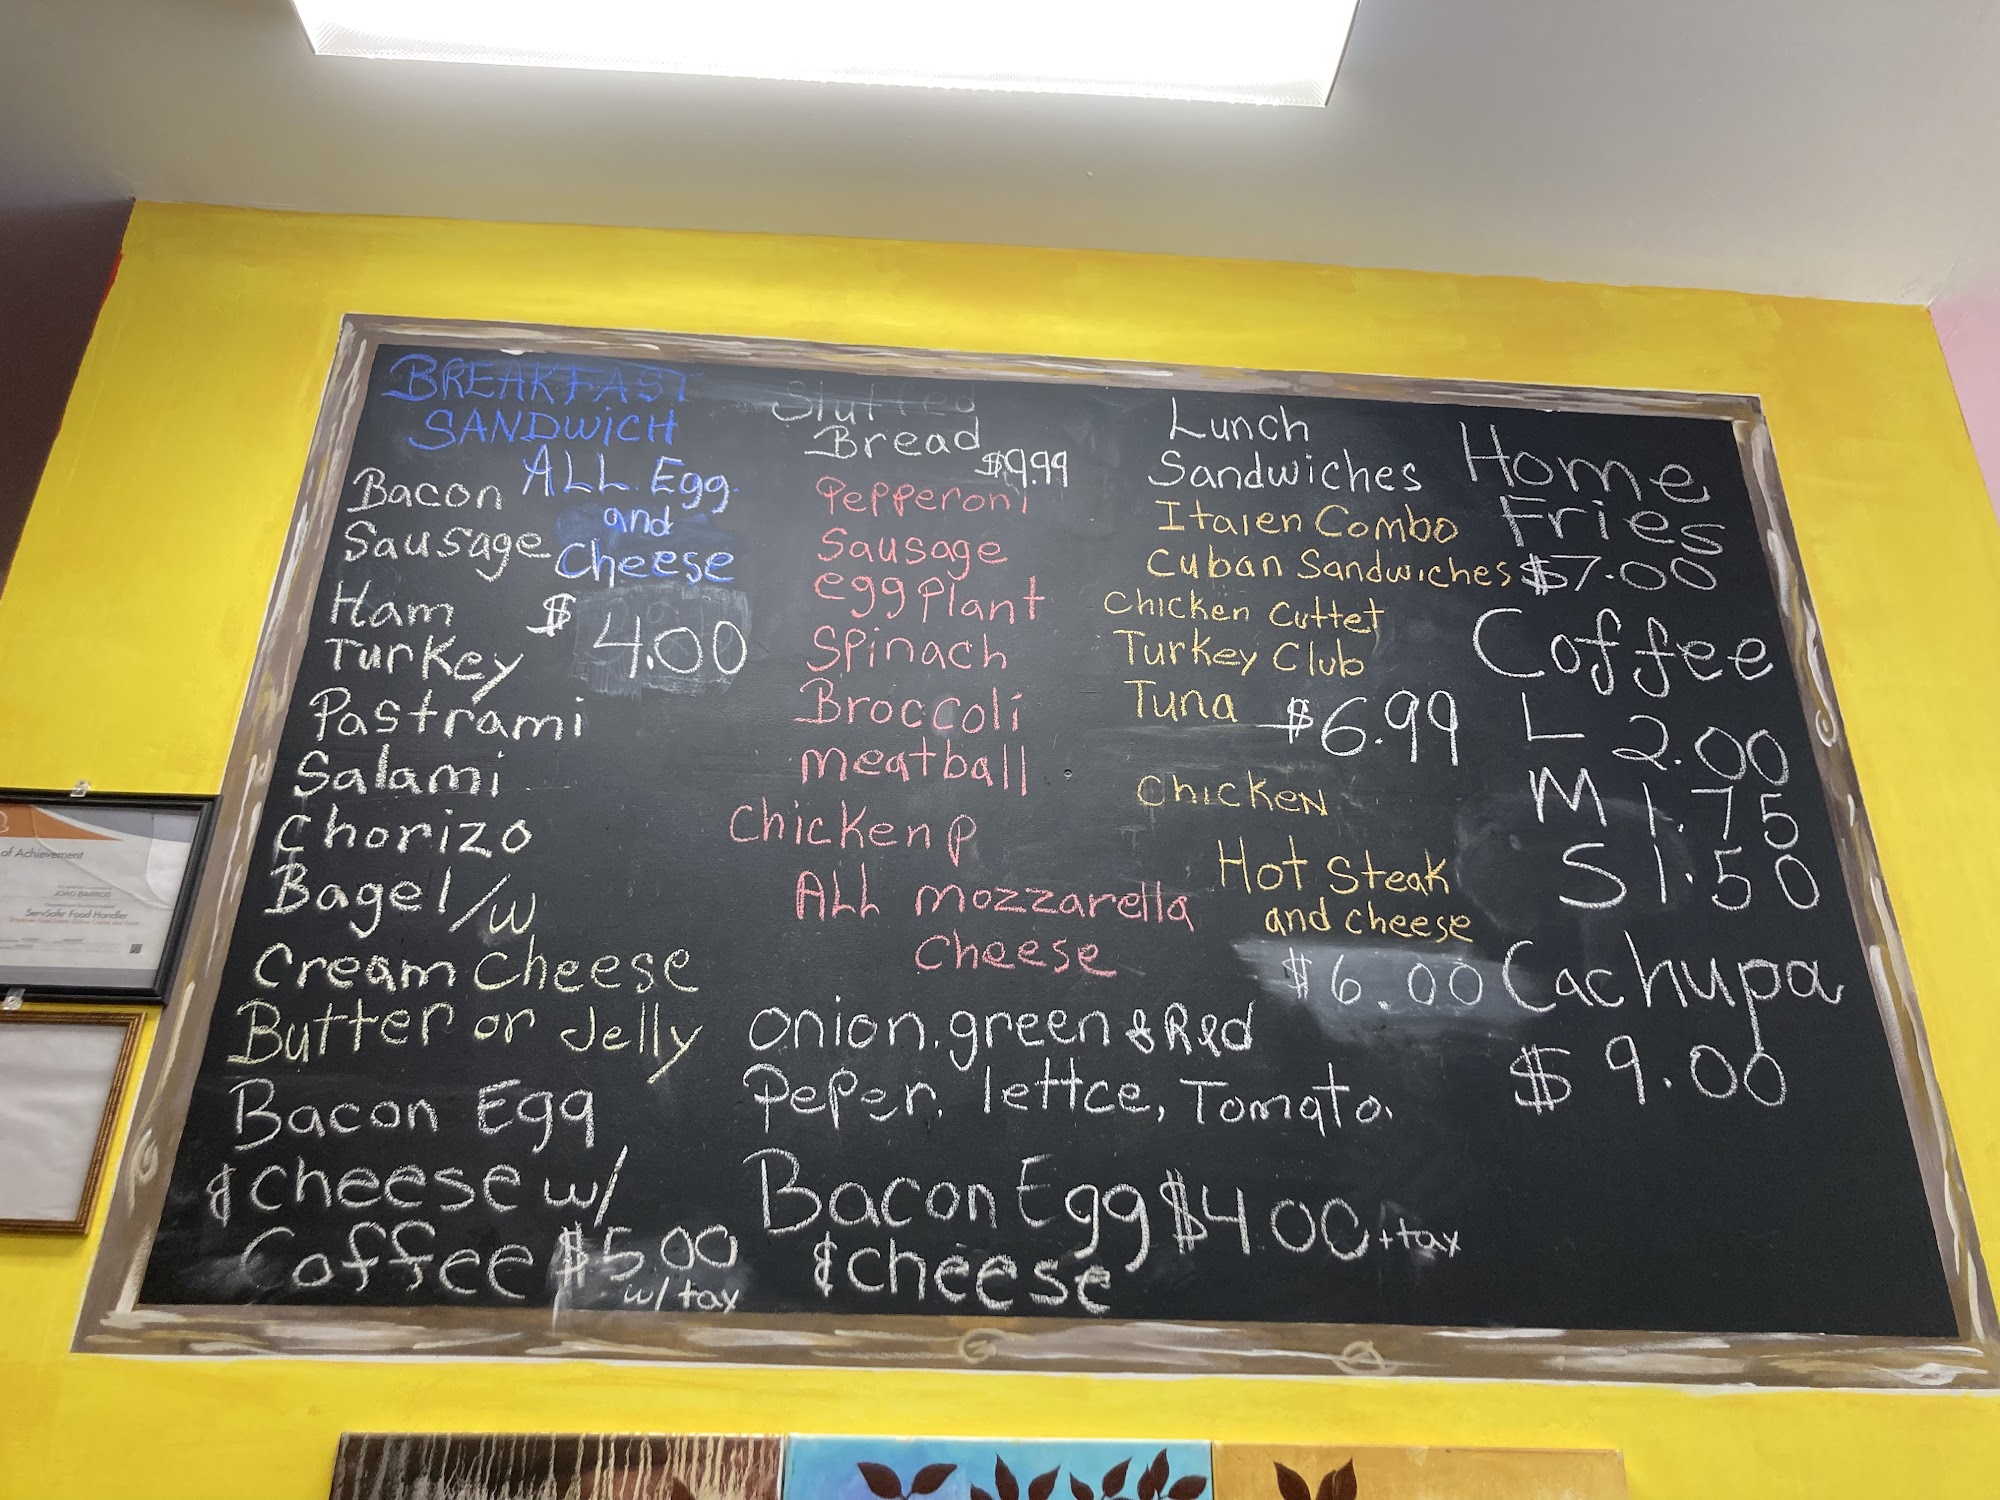 BREAKFAST
SANDWICH
ALL Egg
and
Cheese
$ 4.00
Bacon
Sausage
Ham
Turkey
Pastrami
Salami
Chorizo
Bagel/w
Cream Cheese
Butter or Jelly
Bacon Egg
& cheese w/
Coffee $5.00
w/tax
Stuffed
Bread
$9.99
Pepperoni
Sausage
eggplant
Spinach
Broccoli
meatball
Chicken P
ALL mozzarella
Cheese
onion. green & Red
PePer. lettce, Tomato.
Bacon Egg $4.00 +tax
& cheese
Lunch
Sandwiches
Italen Combo
Cuban Sandwiches
Chicken Cuttet
Turkey Club
Tuna $6.99
Chicken
Hot Steak
and cheese
$6.00
Home
Fries
$7.00
Coffee
L 2.00
M 1.75
S 1.50
Cachupa
$ 9.00
of Achievement
JOAO BARROS
ServSafe Food Handler